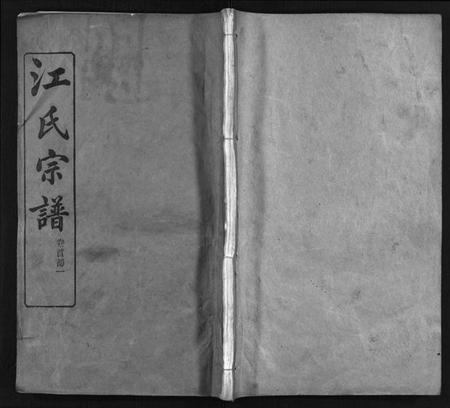 江氏宗譜
卷首部一